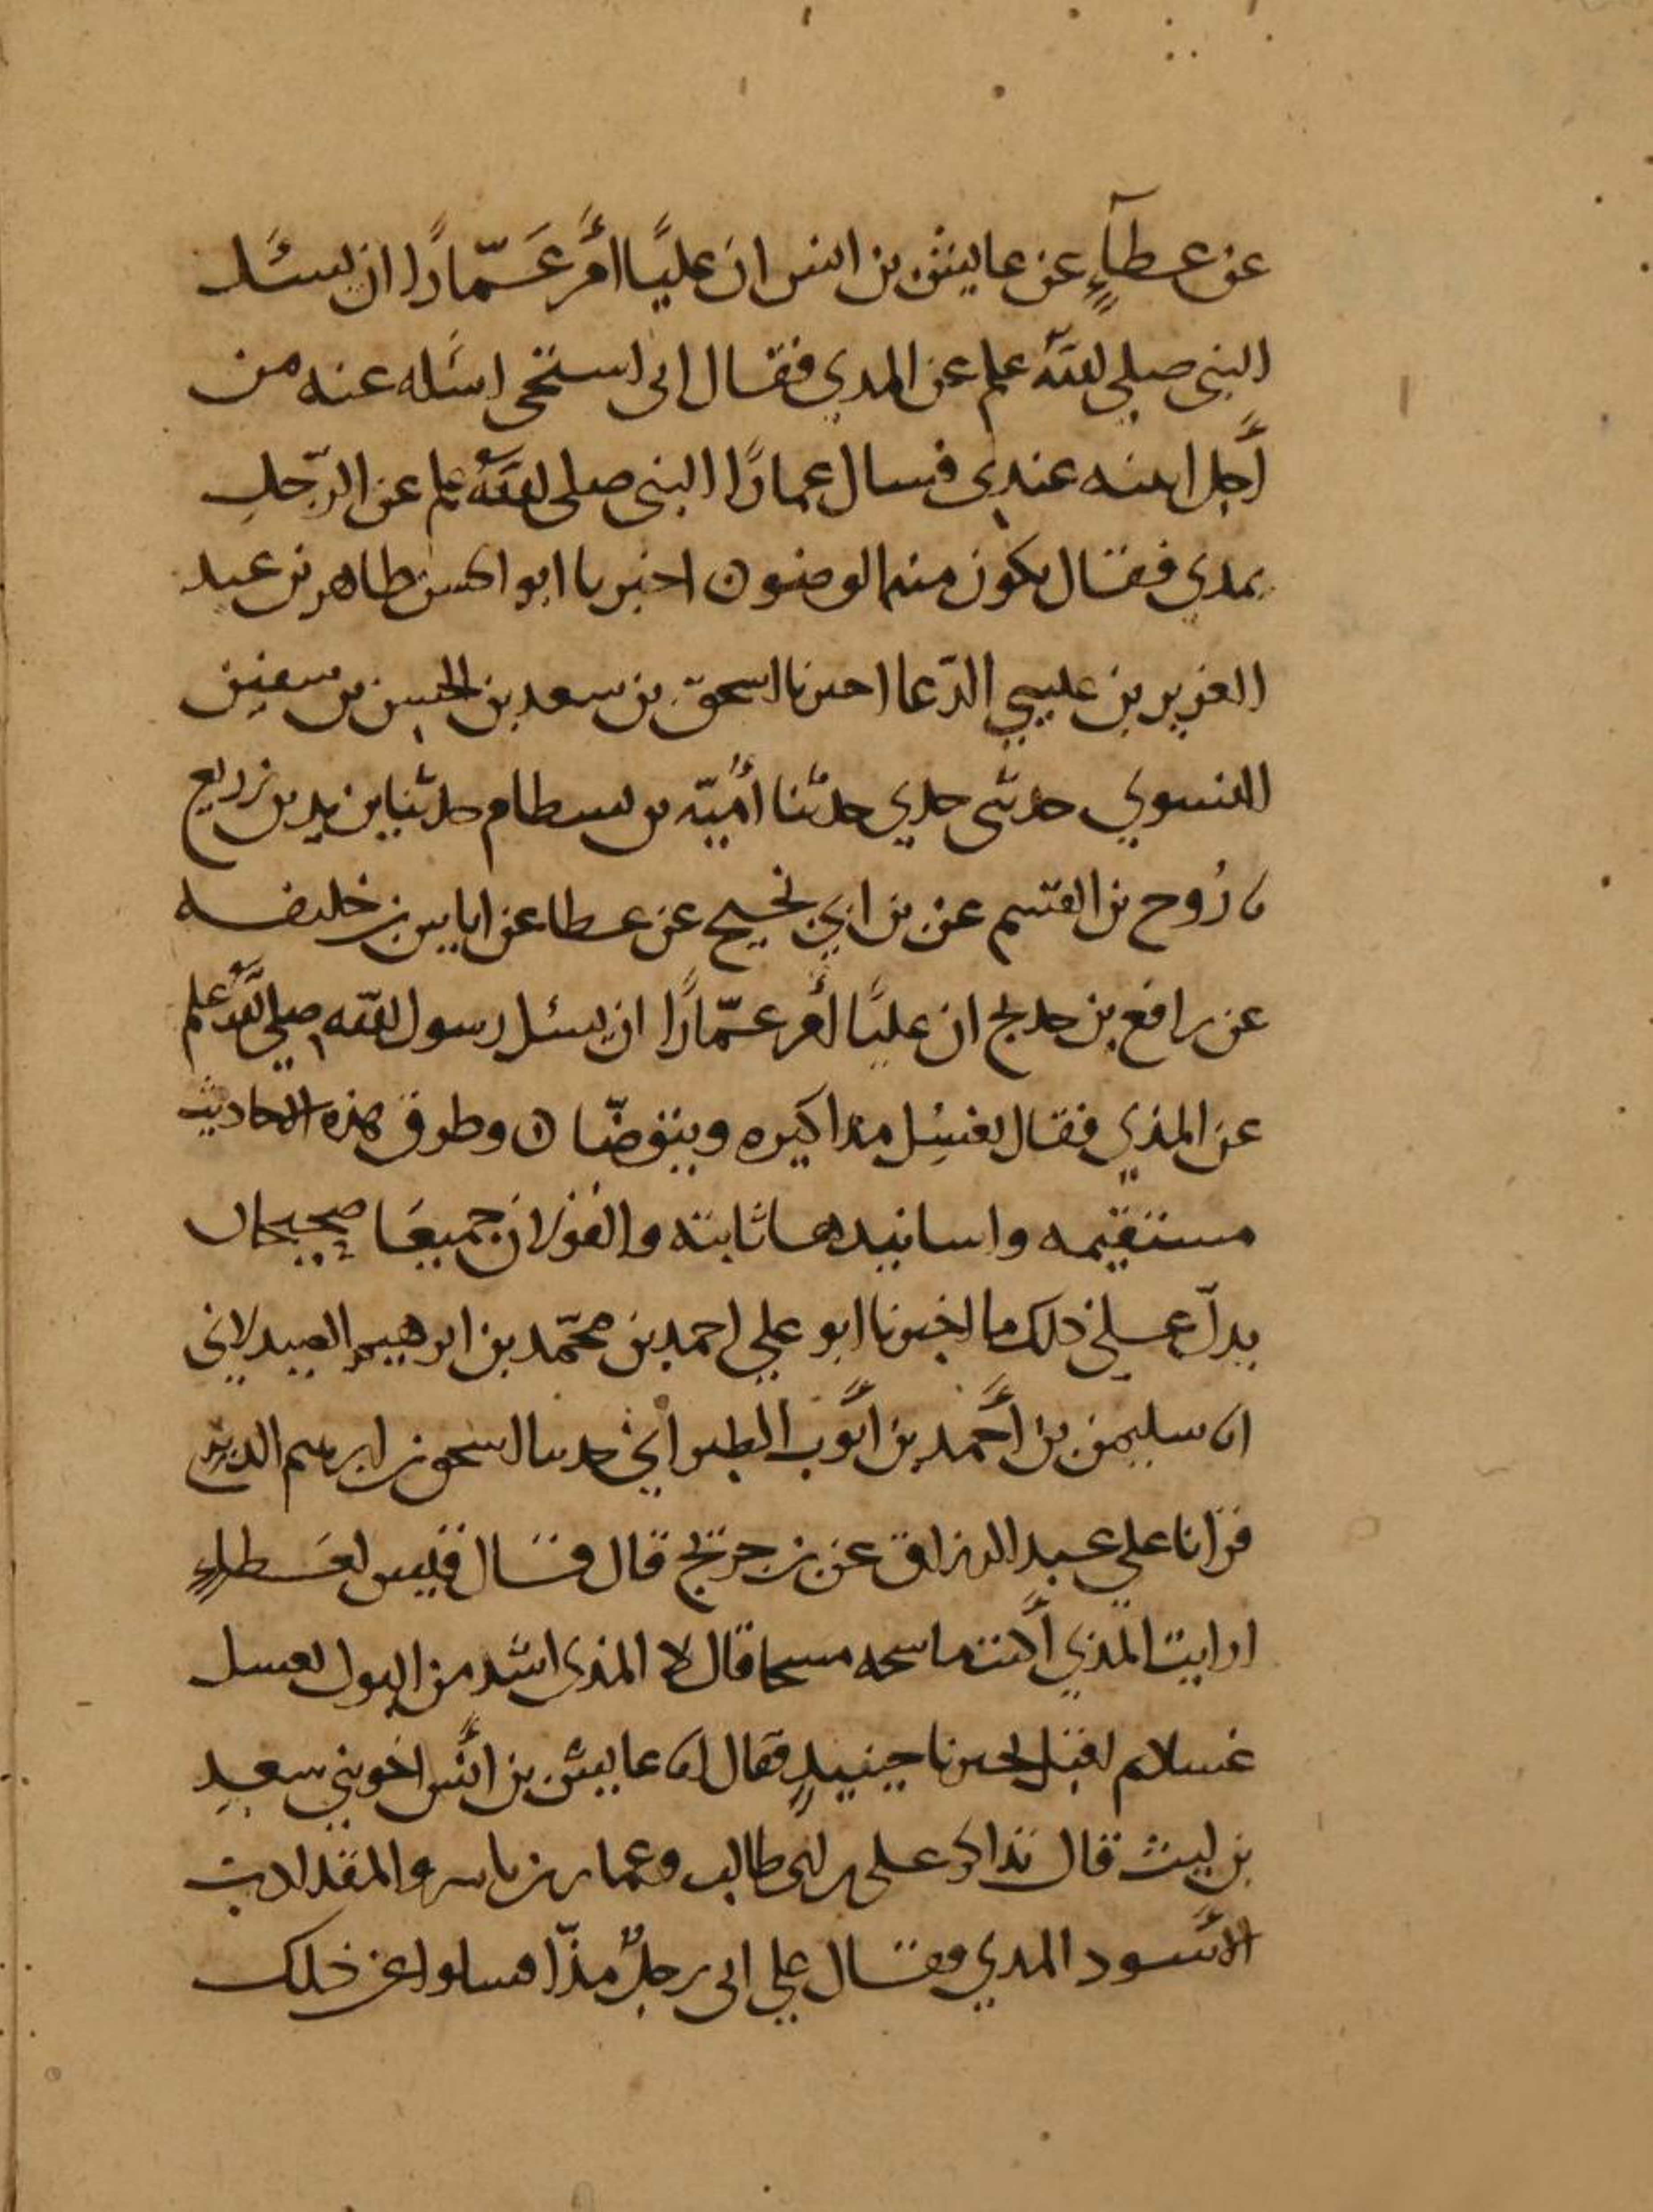 عن عطآءٍ عن عايش بن انس ان عليًا أمَر عَمّارًا ان يسئل
النبي صلى الله علم عن المدي فقال انى استحى اسَله عنه من
أجل ابنته عندي فسال عمارًا النبي صلى الله علم عن الرّجلِ
يمدي فقال يكون منه الوضو ن اخبرنا ابو الحسن طاهر بن عبد
العزيز بن عيسي الدّعا اخبرنا اسحق بن سعد بن الحسن بن سفين
النسوي حدثى جدي حدثنا أُميّه بن بسطام حدثنا يزيد بن زريع
نا رُوح بن القسم عن بن ابي نجيح عن عطا عن اياس بن خليفه
عن رافع بن خديج ان عليًا أمر عمّارًا ان يسئل رسول الله صلي الله علم
عن المذي فقال يغسِل مذاكيره ويتوضّا ن وطرق هذه الاحاديث
مستقيمه واسانيدها ثابته والقولان جميعًا صحيحان
يدلّ على ذلك ما اخبرنا ابو علي احمد بن محمّد بن ابرهيم الصيدلانى
انا سليمن بن أحمد بن أيوب الطبراني حدثنا اسحق بن ابرهيم الدبري
قرانا على عبد الرزاق عن بن جريج قال قال قيس لعَطاءٍ
ارايت المذي أكنت ماسحه مسحا قال لا المذى اشد من البول يغسل
غسلا ثم اخبرنا حينيدٍ فقال انا عايش بن أنس اخو بني سعدِ
بن ليث قال تذاكر على بن ابى طالب وعمار بن ياسر والمقداد بن
الأسود المدي فقال علي انى رجلٌ مذّا فسلوا عن ذلك